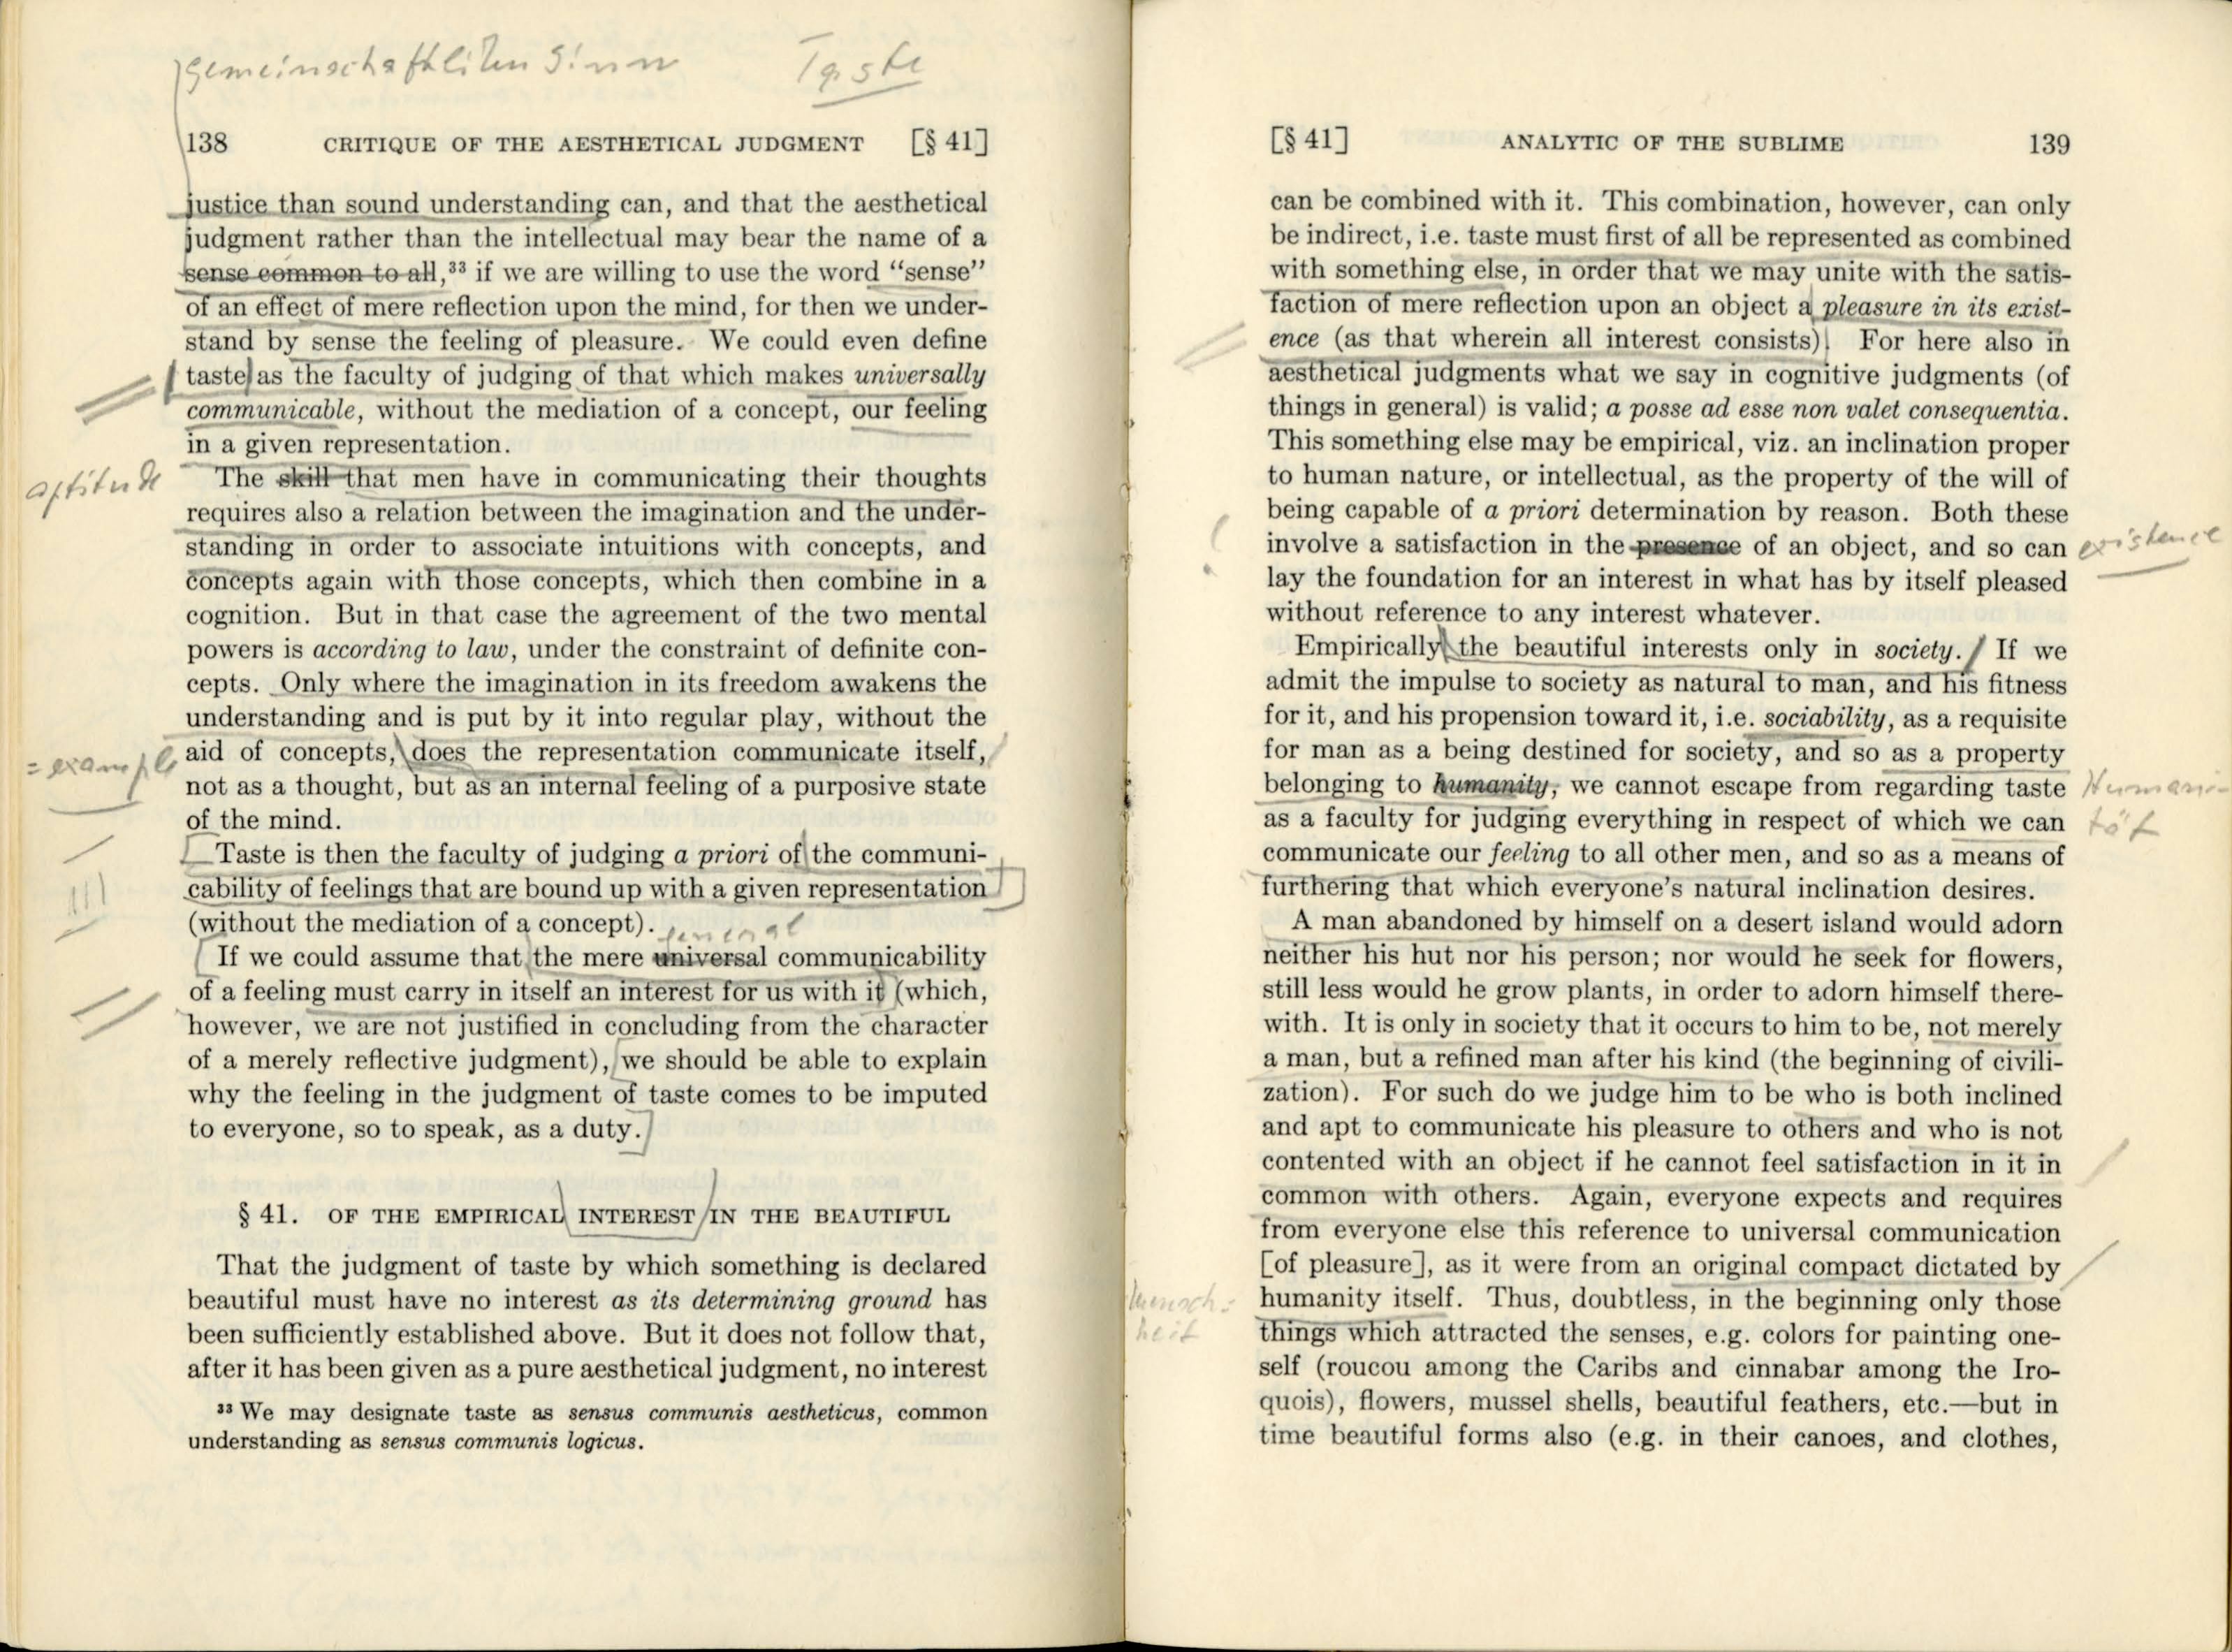 gemeinschaftlichen Sinn Taste
138 CRITIQUE OF THE AESTHETICAL JUDGMENT [§ 41]
justice than sound understanding can, and that the aesthetical
judgment rather than the intellectual may bear the name of a
sense common to all,³³ if we are willing to use the word “sense”
of an effect of mere reflection upon the mind, for then we under-
stand by sense the feeling of pleasure. We could even define
taste as the faculty of judging of that which makes universally
communicable, without the mediation of a concept, our feeling
in a given representation.
aptitude
The skill that men have in communicating their thoughts
requires also a relation between the imagination and the under-
standing in order to associate intuitions with concepts, and
concepts again with those concepts, which then combine in a
cognition. But in that case the agreement of the two mental
powers is according to law, under the constraint of definite con-
cepts. Only where the imagination in its freedom awakens the
understanding and is put by it into regular play, without the
= example
aid of concepts, does the representation communicate itself,
not as a thought, but as an internal feeling of a purposive state
of the mind.
Taste is then the faculty of judging a priori of the communi-
cability of feelings that are bound up with a given representation
(without the mediation of a concept).
general
If we could assume that the mere universal communicability
of a feeling must carry in itself an interest for us with it (which,
however, we are not justified in concluding from the character
of a merely reflective judgment), we should be able to explain
why the feeling in the judgment of taste comes to be imputed
to everyone, so to speak, as a duty.
§ 41. OF THE EMPIRICAL INTEREST IN THE BEAUTIFUL
That the judgment of taste by which something is declared
beautiful must have no interest as its determining ground has
been sufficiently established above. But it does not follow that,
after it has been given as a pure aesthetical judgment, no interest
³³ We may designate taste as sensus communis aestheticus, common
understanding as sensus communis logicus.
[§ 41] ANALYTIC OF THE SUBLIME 139
can be combined with it. This combination, however, can only
be indirect, i.e. taste must first of all be represented as combined
with something else, in order that we may unite with the satis-
faction of mere reflection upon an object a pleasure in its exist-
ence (as that wherein all interest consists). For here also in
aesthetical judgments what we say in cognitive judgments (of
things in general) is valid; a posse ad esse non valet consequentia.
This something else may be empirical, viz. an inclination proper
to human nature, or intellectual, as the property of the will of
being capable of a priori determination by reason. Both these
involve a satisfaction in the presence of an object, and so can
existence
lay the foundation for an interest in what has by itself pleased
without reference to any interest whatever.
Empirically the beautiful interests only in society. If we
admit the impulse to society as natural to man, and his fitness
for it, and his propension toward it, i.e. sociability, as a requisite
for man as a being destined for society, and so as a property
belonging to humanity, we cannot escape from regarding taste
Humani-
tät
as a faculty for judging everything in respect of which we can
communicate our feeling to all other men, and so as a means of
furthering that which everyone’s natural inclination desires.
A man abandoned by himself on a desert island would adorn
neither his hut nor his person; nor would he seek for flowers,
still less would he grow plants, in order to adorn himself there-
with. It is only in society that it occurs to him to be, not merely
a man, but a refined man after his kind (the beginning of civili-
zation). For such do we judge him to be who is both inclined
and apt to communicate his pleasure to others and who is not
contented with an object if he cannot feel satisfaction in it in
common with others. Again, everyone expects and requires
from everyone else this reference to universal communication
[of pleasure], as it were from an original compact dictated by
Mensch-
heit
humanity itself. Thus, doubtless, in the beginning only those
things which attracted the senses, e.g. colors for painting one-
self (roucou among the Caribs and cinnabar among the Iro-
quois), flowers, mussel shells, beautiful feathers, etc.—but in
time beautiful forms also (e.g. in their canoes, and clothes,